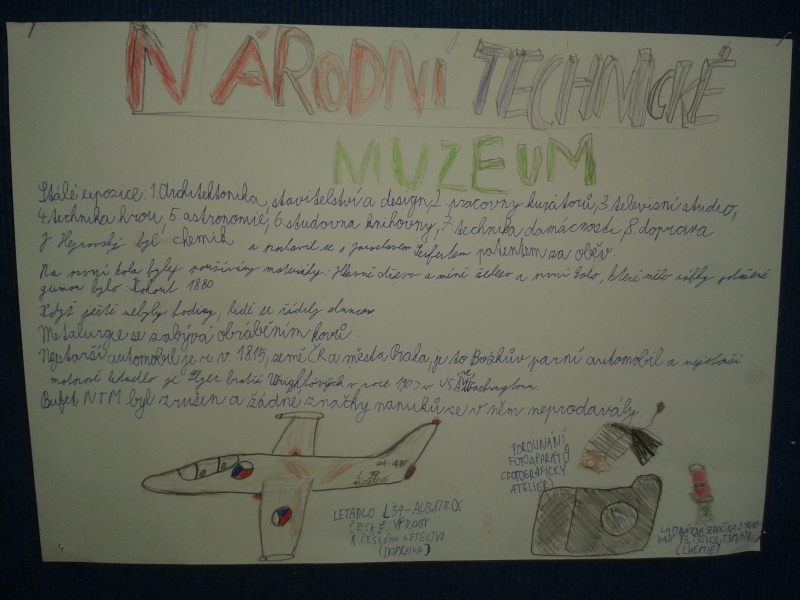 NÁRODNÍ TECHNICKÉ
MUZEUM
Stálé expozice: 1. Architektonika, stavitelství a design, 2. pracovny kurátorů, 3. televizní studio,
4. technika hrou, 5. astronomie, 6. studovna knihovny, 7. technika domácností, 8. doprava
J. Heyrovský byl chemik a s Jaroslavem Seifertem
Na první kola byly používány materiály: Hlavně dřevo a méně železo a první kolo, které mělo ráfky potažené
gumou bylo: Kohout 1880
Když ještě nebyly hodiny, lidé se řídily sluncem
Metalurgie se zabývá obráběním kovů.
Nejstarší automobil je v 1815, země ČR a města Praha, je to Božkův parní automobil a nejstarší
motorové letadlo je bratří Wrightových v roce 1903 v USA ve Washingtonu.
Bufet NTM byl zrušen a žádné značky nanuků se v něm neprodavály.
L 39
POROVNÁNÍ
FOTOAPARÁTŮ
(FOTOGRAFICKÝ
ATELIER)
LETADLO L39-ALBATROS
ČESKÉ VÝROBY
A ČESKÉHO LETECTVA
(DOPRAVA)
(CHEMIE)